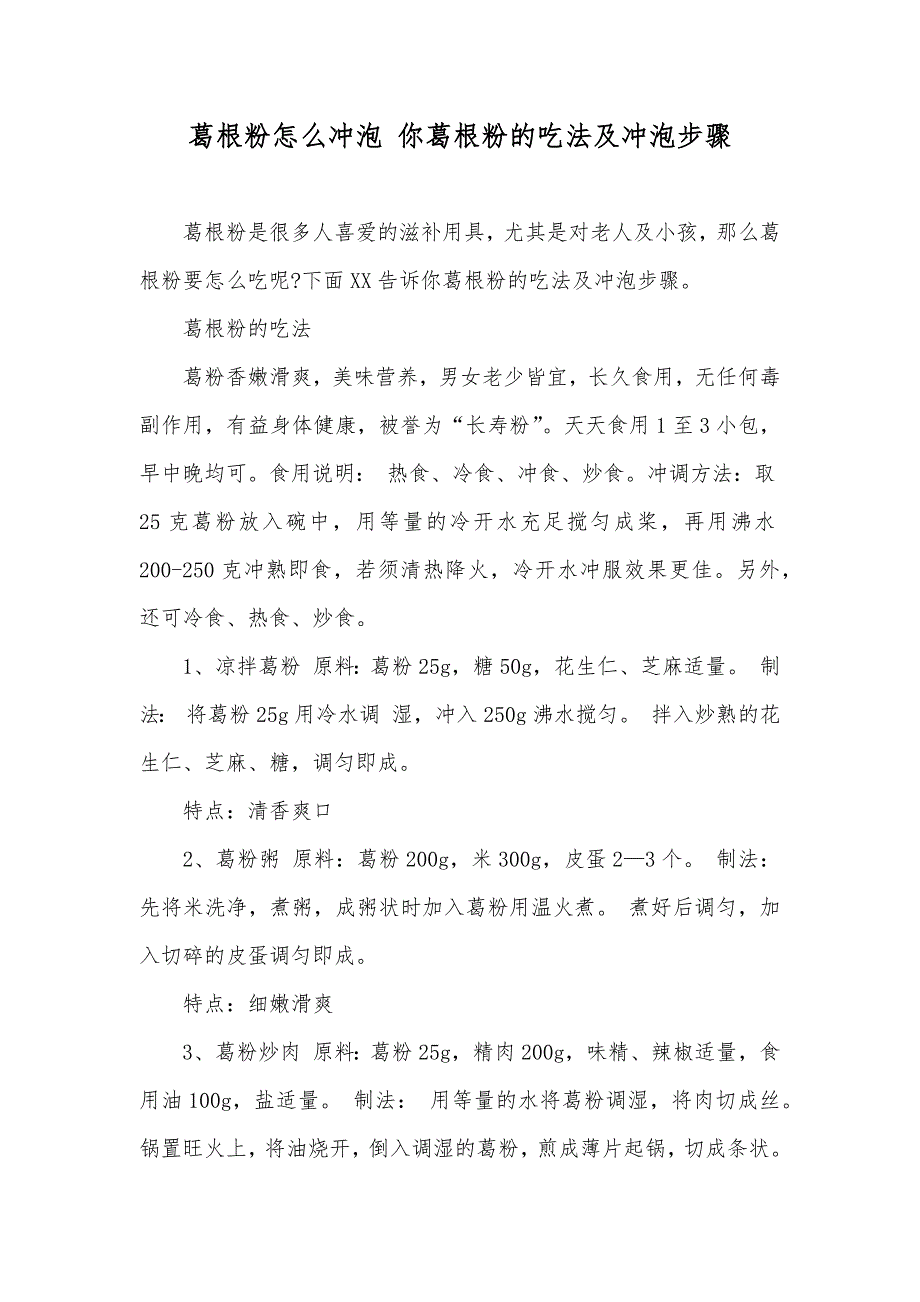 葛根粉怎么冲泡 你葛根粉的吃法及冲泡步骤
葛根粉是很多人喜爱的滋补用具，尤其是对老人及小孩，那么葛
根粉要怎么吃呢?下面 XX 告诉你葛根粉的吃法及冲泡步骤。
葛根粉的吃法
葛粉香嫩滑爽，美味营养，男女老少皆宜，长久食用，无任何毒
副作用，有益身体健康，被誉为“长寿粉”。天天食用 1 至 3 小包，
早中晚均可。食用说明： 热食、冷食、冲食、炒食。冲调方法：取
25 克葛粉放入碗中，用等量的冷开水充足搅匀成桨，再用沸水
200-250 克冲熟即食，若须清热降火，冷开水冲服效果更佳。另外，
还可冷食、热食、炒食。
1、凉拌葛粉 原料：葛粉 25g，糖 50g，花生仁、芝麻适量。 制
法： 将葛粉 25g 用冷水调 湿，冲入 250g 沸水搅匀。 拌入炒熟的花
生仁、芝麻、糖，调匀即成。
特点：清香爽口
2、葛粉粥 原料：葛粉 200g，米 300g，皮蛋 2—3 个。 制法：
先将米洗净，煮粥，成粥状时加入葛粉用温火煮。 煮好后调匀，加
入切碎的皮蛋调匀即成。
特点：细嫩滑爽
3、葛粉炒肉 原料：葛粉 25g，精肉 200g，味精、辣椒适量，食
用油 100g，盐适量。 制法： 用等量的水将葛粉调湿，将肉切成丝。
锅置旺火上，将油烧开，倒入调湿的葛粉，煎成薄片起锅，切成条状。